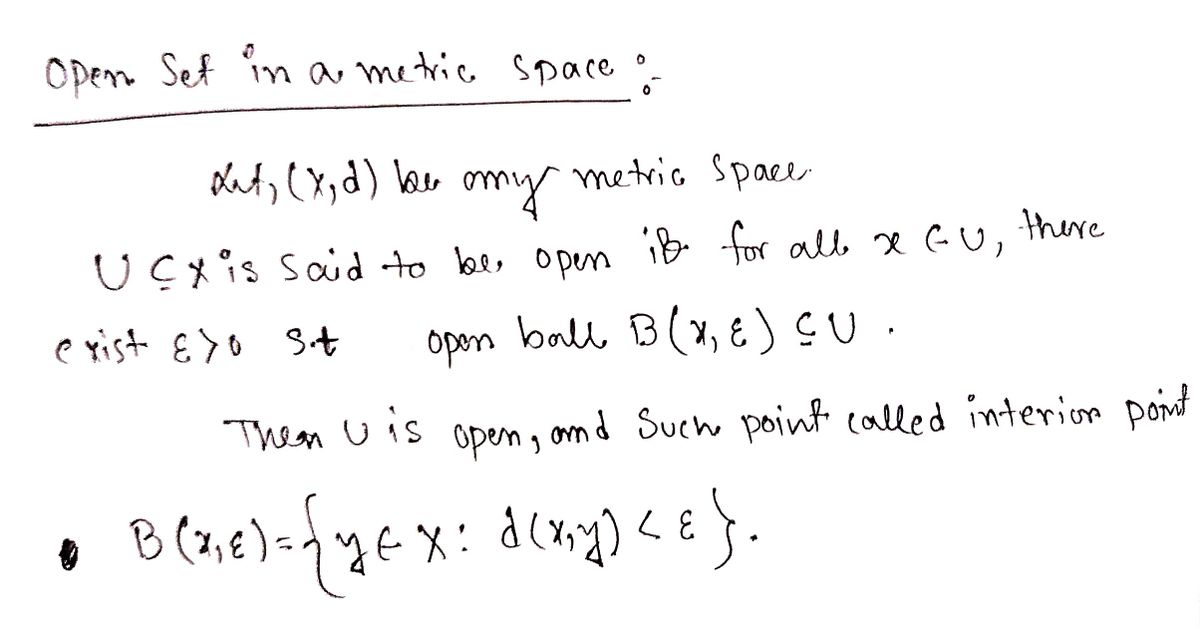 Open Set in a metric space :-
Let, (X,d) be any metric space.
U ⊆ X is said to be, open if for all x ∈ U, there
exist ε>0 s.t open ball B(x, ε) ⊆ U .
Then U is open, and such point called interior point
• B(x,ε)={y ∈ X: d(x,y) < ε}.